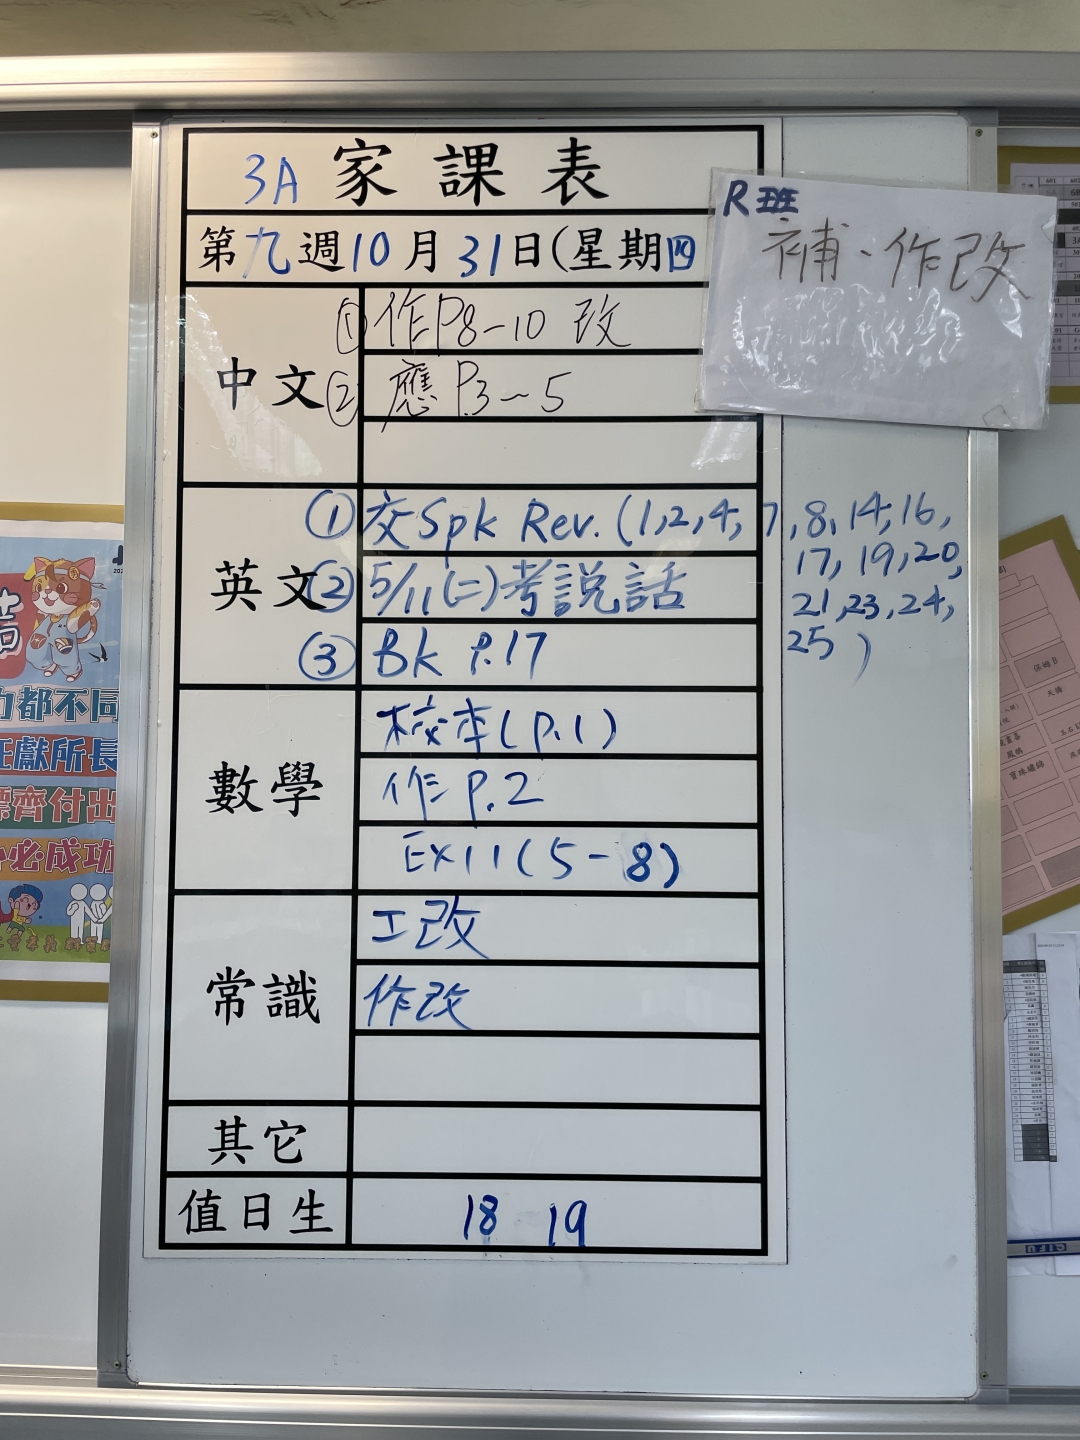 3A 家課表
第九週10月31日(星期四
R班
補、作改
中文
① 作P8-10 改
② 應 P.3~5
英文
① 交Spk Rev. (1,2,4,7,8,14,16,
17,19,20,
21,23,24,
25)
② 5/11(二)考說話
③ Bk P.17
數學
校本(P.1)
作 P.2
Ex11(5-8)
常識
工改
作改
其它
值日生
18 19
力都不同
任獻所長
標齊付出
必成功
保姆B
天橋